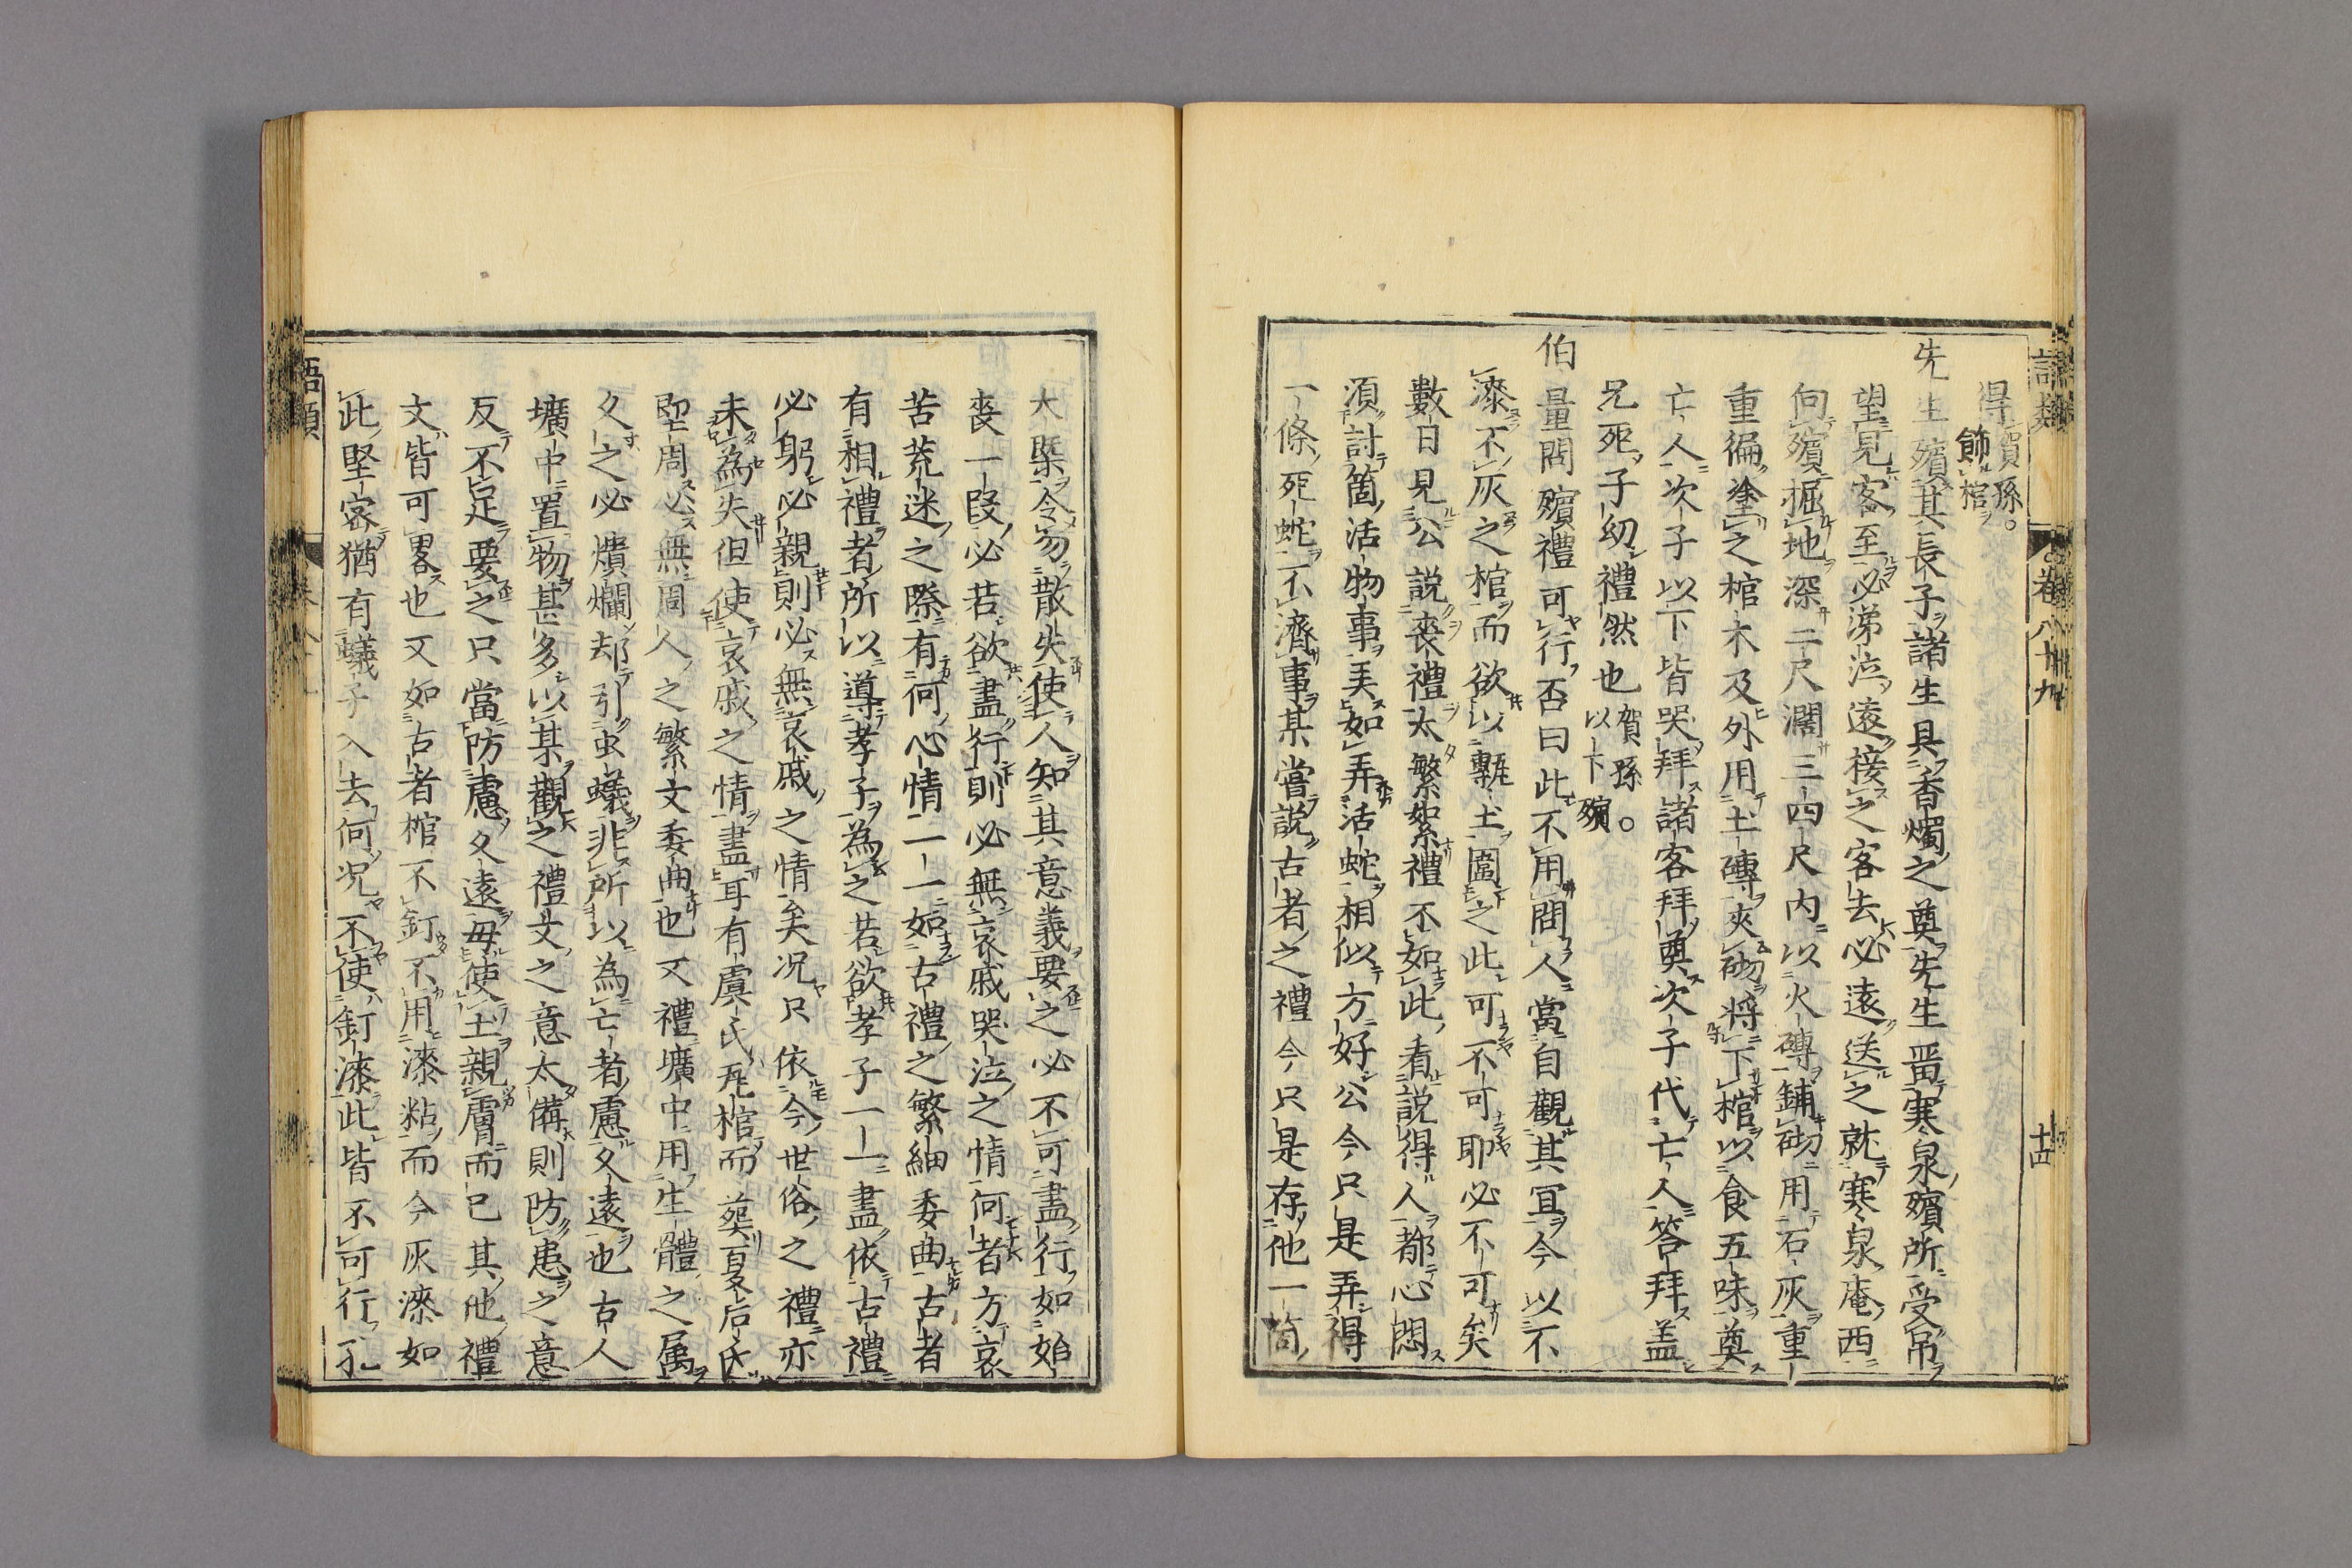 語類
卷八十九
十四
得賀孫。飾棺
先生殯其長子諸生具香燭之奠先生畱寒泉殯所受吊
望見客至必涕泣遠接之客去必遠送之就寒泉庵西
向殯掘地深二尺濶三四尺内以火磚鋪砌用石灰重
重徧塗之棺木及外用土磚夾砌將下棺以食五味奠
亡人次子以下皆哭拜諸客拜奠次子代亡人答拜盖
兄死子幼禮然也賀孫。以下殯
伯量問殯禮可行否曰此不用問人當自觀其宜今以不
漆不灰之棺而欲以甎土圍之此可不可耶必不可矣
數日見公説喪禮太繁絮禮不如此看説得人都心悶
須討箇活物事弄如弄活蛇相似方好公今只是弄得
一條死蛇不濟事某嘗説古者之禮今只是存他一箇
大槩令勿散失使人知其意義要之必不可盡行如始
喪一段必若欲盡行則必無哀戚哭泣之情何者方哀
苦荒迷之際有何心情一一如古禮之繁細委曲古者
有相禮者所以導孝子為之若欲孝子一一盡依古禮
必躬必親則必無哀戚之情矣况只依今世俗之禮亦
未為失但使哀戚之情盡耳有虞氏瓦棺而塟夏后氏
堲周必無周人之繁文委曲也又禮壙中用生體之属
久之必潰爛却引虫蟻非所以為亡者慮久遠也古人
壙中置物甚多以某觀之禮文之意太備則防患之意
反不足要之只當防慮久遠毋使土親膚而已其他禮
文皆可畧也又如古者棺不釘不用漆粘而今灰漆如
此堅宻猶有蟻子入去何况不使釘漆此皆不可行孔
語類